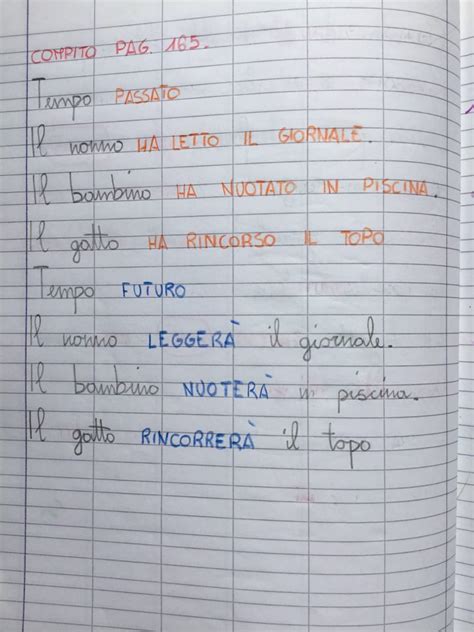 COMPITO PAG. 165.
Tempo PASSATO
Il nonno HA LETTO IL GIORNALE.
Il bambino HA NUOTATO IN PISCINA.
Il gatto HA RINCORSO IL TOPO
Tempo FUTURO
Il nonno LEGGERÀ il giornale.
Il bambino NUOTERÀ in piscina.
Il gatto RINCORRERÀ il topo